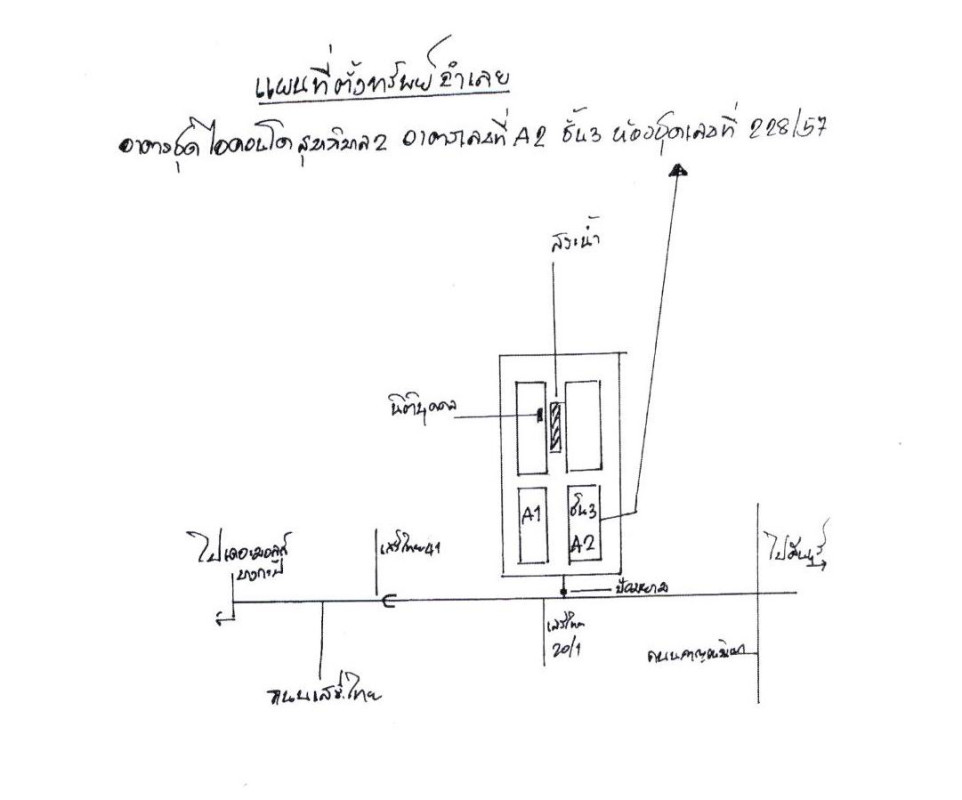 แผนที่ตั้งทรัพย์จำเลย
อาคารชุด ไอคอนโด สุขาภิบาล 2 อาคารเลขที่ A2 ชั้น 3 ห้องชุดเลขที่ 228/57
สระน้ำ
นิติบุคคล
A1
ชั้น 3
A2
ไปเดอะมอลล์
บางกะปิ
เสรีไทย 41
ไปมีนบุรี
ป้อมยาม
เสรีไทย
20/1
ถนนกาญจนาภิเษก
ถนนเสรีไทย